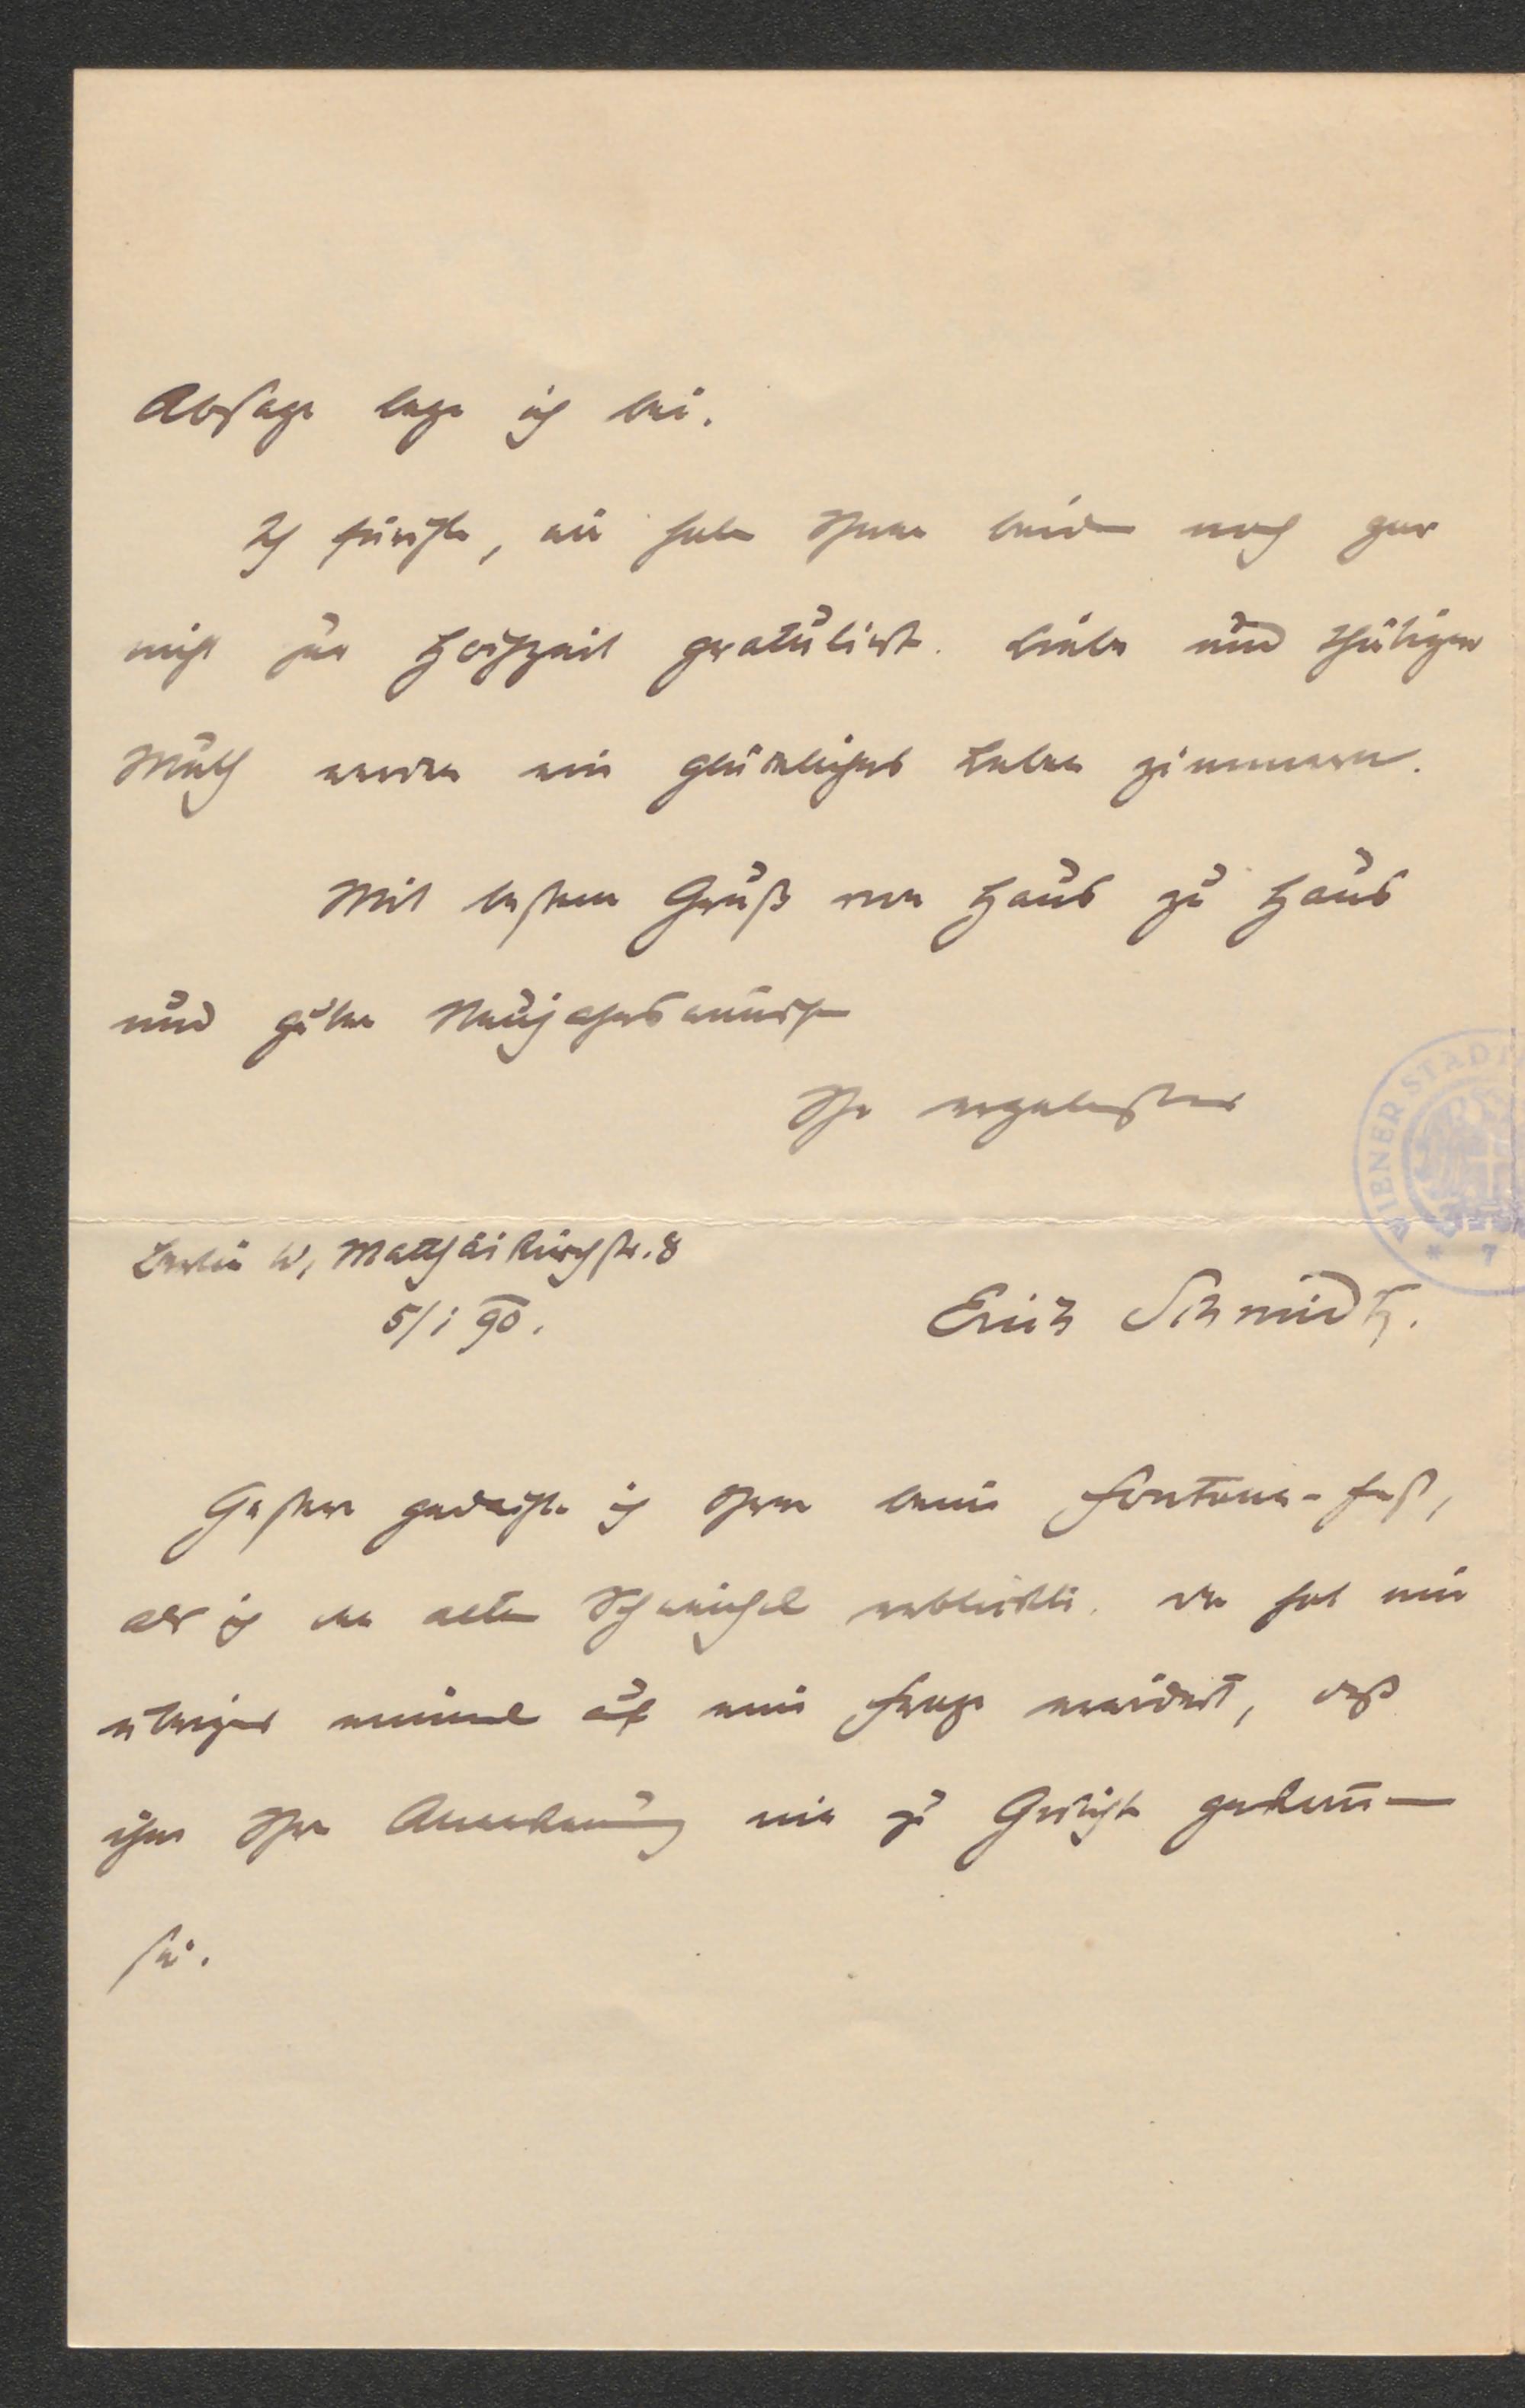 Absage lege ich bei.
Ich fürchte, wir haben Ihnen beiden noch gar
nicht zur Hochzeit gratulirt. Liebe und thätiger
Muth werden ein glückliches Leben zimmern.
Mit bestem Gruß von Haus zu Haus
und guten Neujahrswünschen
Ihr ergebenster
Berlin W, Matthäikirchstr. 8
5/1 90.
Erich Schmidt.
WIENER STADT
7
Gestern gedachte ich Ihrer beim Fontane-Fest,
als ich den alten erblickte. Der hat mir
übrigens einmal auf meine Frage erwidert, daß
ihm Ihre nie zu Gesicht gekommen
sei.